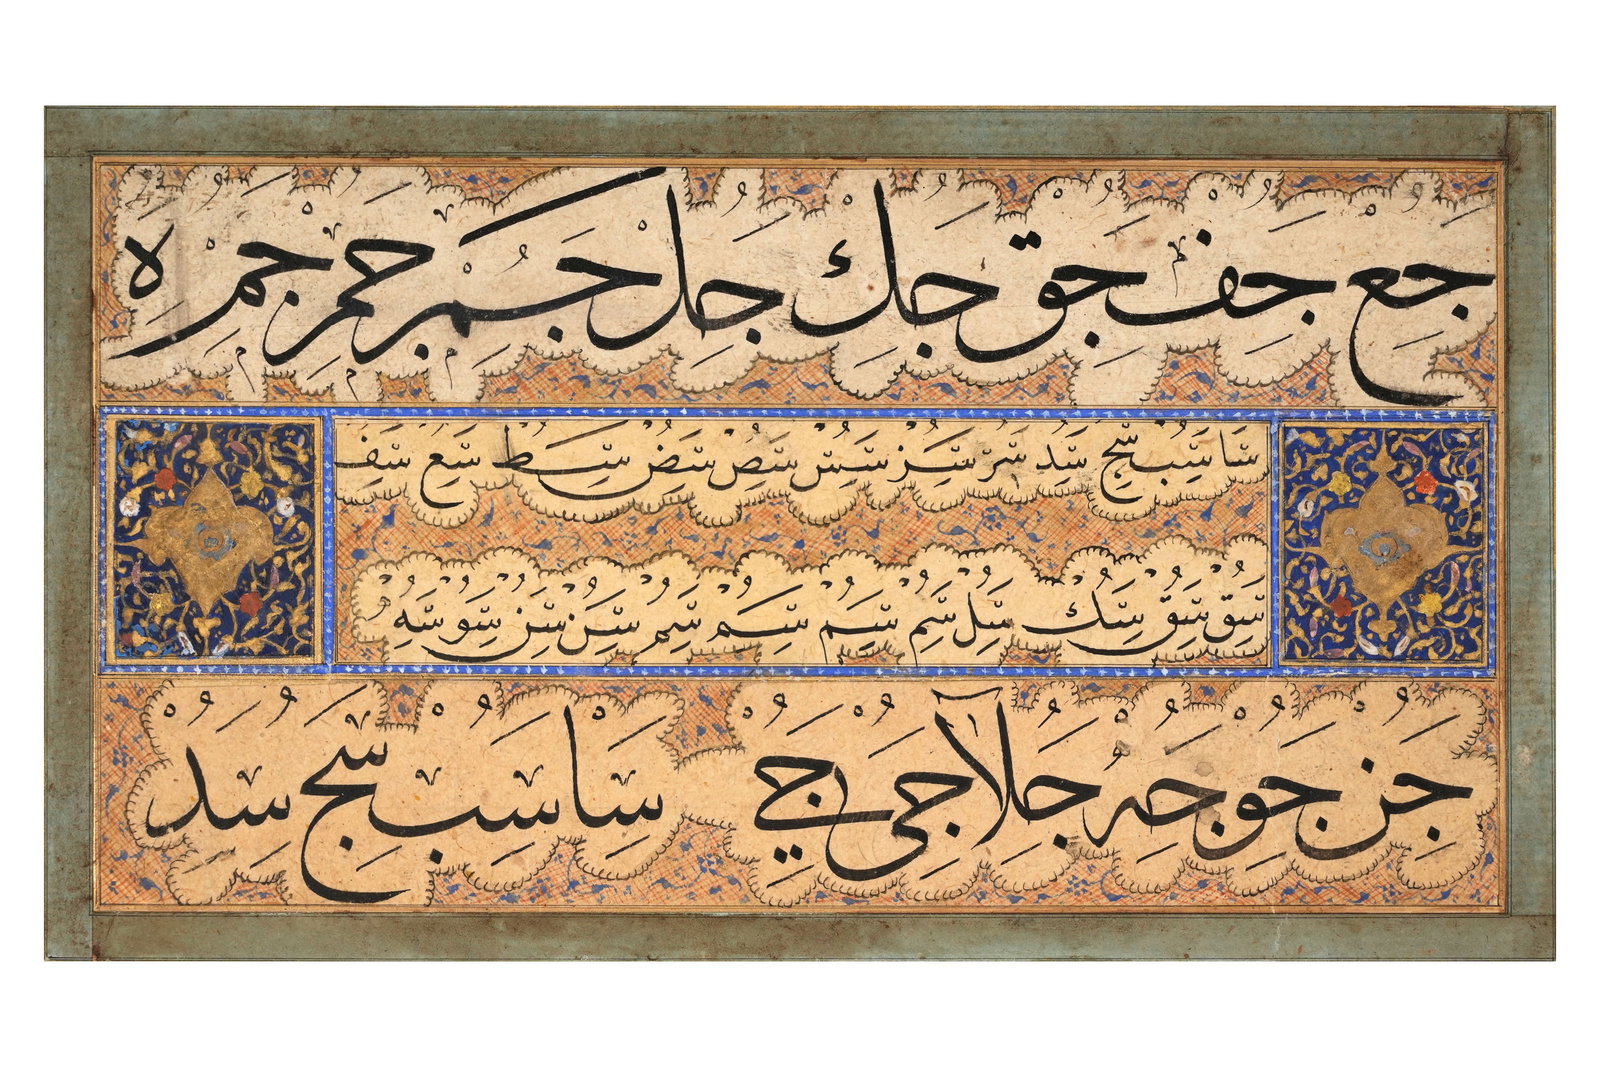 جع جف جق جك جل جم جم جم ه
سا سب سج سد سر سر سس سص سض سط سع سف
سق سق سك سل سم سم سم سم سن سن سو سه
جن جو جه جلا جى جے سا سب سج سد